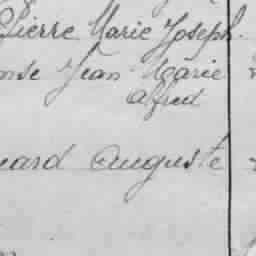 Pierre Marie Joseph
Jean Marie
alfred
auguste